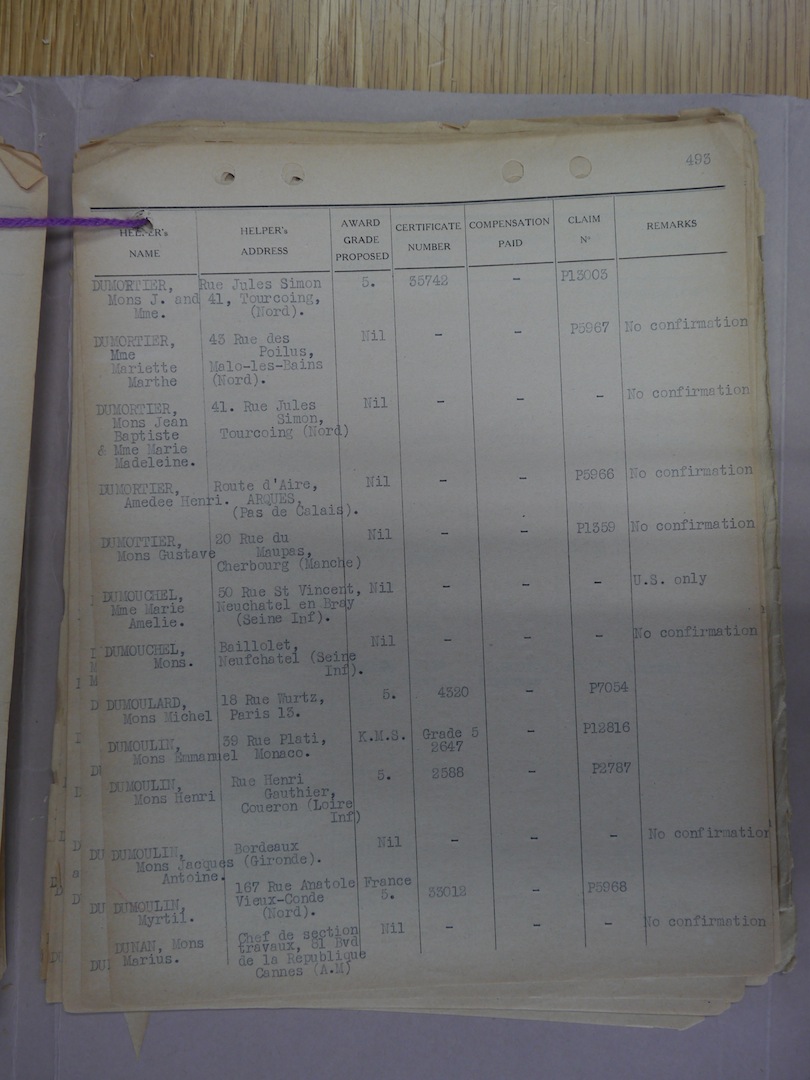 493
HELPER's NAME HELPER's ADDRESS AWARD GRADE PROPOSED CERTIFICATE NUMBER COMPENSATION PAID CLAIM N° REMARKS
DUMORTIER, Rue Jules Simon 5. 35742 - P13003
Mons J. and 41, Tourcoing,
Mme. (Nord).
DUMORTIER, 43 Rue des Nil - - P5967 No confirmation
Mme Poilus,
Mariette Malo-les-Bains
Marthe (Nord).
DUMORTIER, 41. Rue Jules Nil - - - No confirmation
Mons Jean Simon,
Baptiste Tourcoing (Nord)
& Mme Marie
Madeleine.
DUMORTIER, Route d'Aire, Nil - - P5966 No confirmation
Amedee Henri. ARQUES,
(Pas de Calais).
DUMOTTIER, 20 Rue du Nil - - P1359 No confirmation
Mons Gustave Maupas,
Cherbourg (Manche)
DUMOUCHEL, 50 Rue St Vincent, Nil - - - U.S. only
Mme Marie Neuchatel en Bray
Amelie. (Seine Inf).
DUMOUCHEL, Baillolet, Nil - - - No confirmation
Mons. Neufchatel (Seine
Inf).
DUMOULARD, 18 Rue Wurtz, 5. 4320 - P7054
Mons Michel Paris 13.
DUMOULIN, 39 Rue Plati, K.M.S. Grade 5 - P12816
Mons Emmanuel Monaco. 2647
DUMOULIN, Rue Henri 5. 2588 - P2787
Mons Henri Gauthier,
Coueron (Loire
Inf)
DUMOULIN, Bordeaux Nil - - - No confirmation
Mons Jacques (Gironde).
Antoine.
DUMOULIN, 167 Rue Anatole France 5. 33012 - P5968
Myrtil. Vieux-Conde
(Nord).
DUNAN, Mons Chef de section Nil - - - No confirmation
Marius. travaux, 81 Bvd
de la Republique
Cannes (A.M)